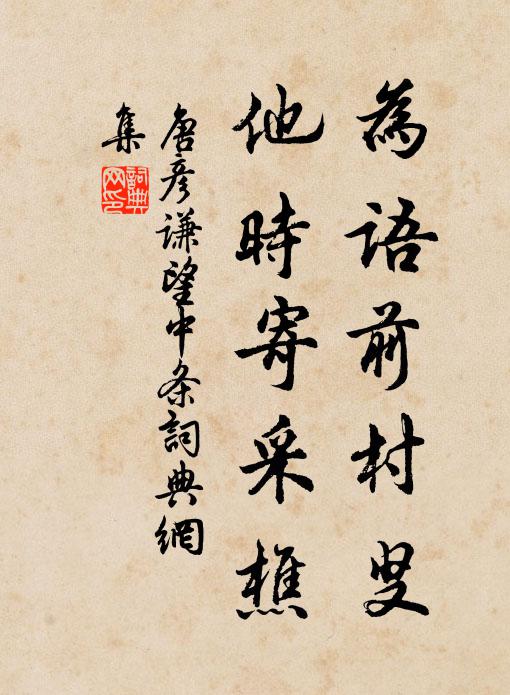 為語前村叟
他時寄采樵
唐彦謙望中条詞典網
集
詞典
网印